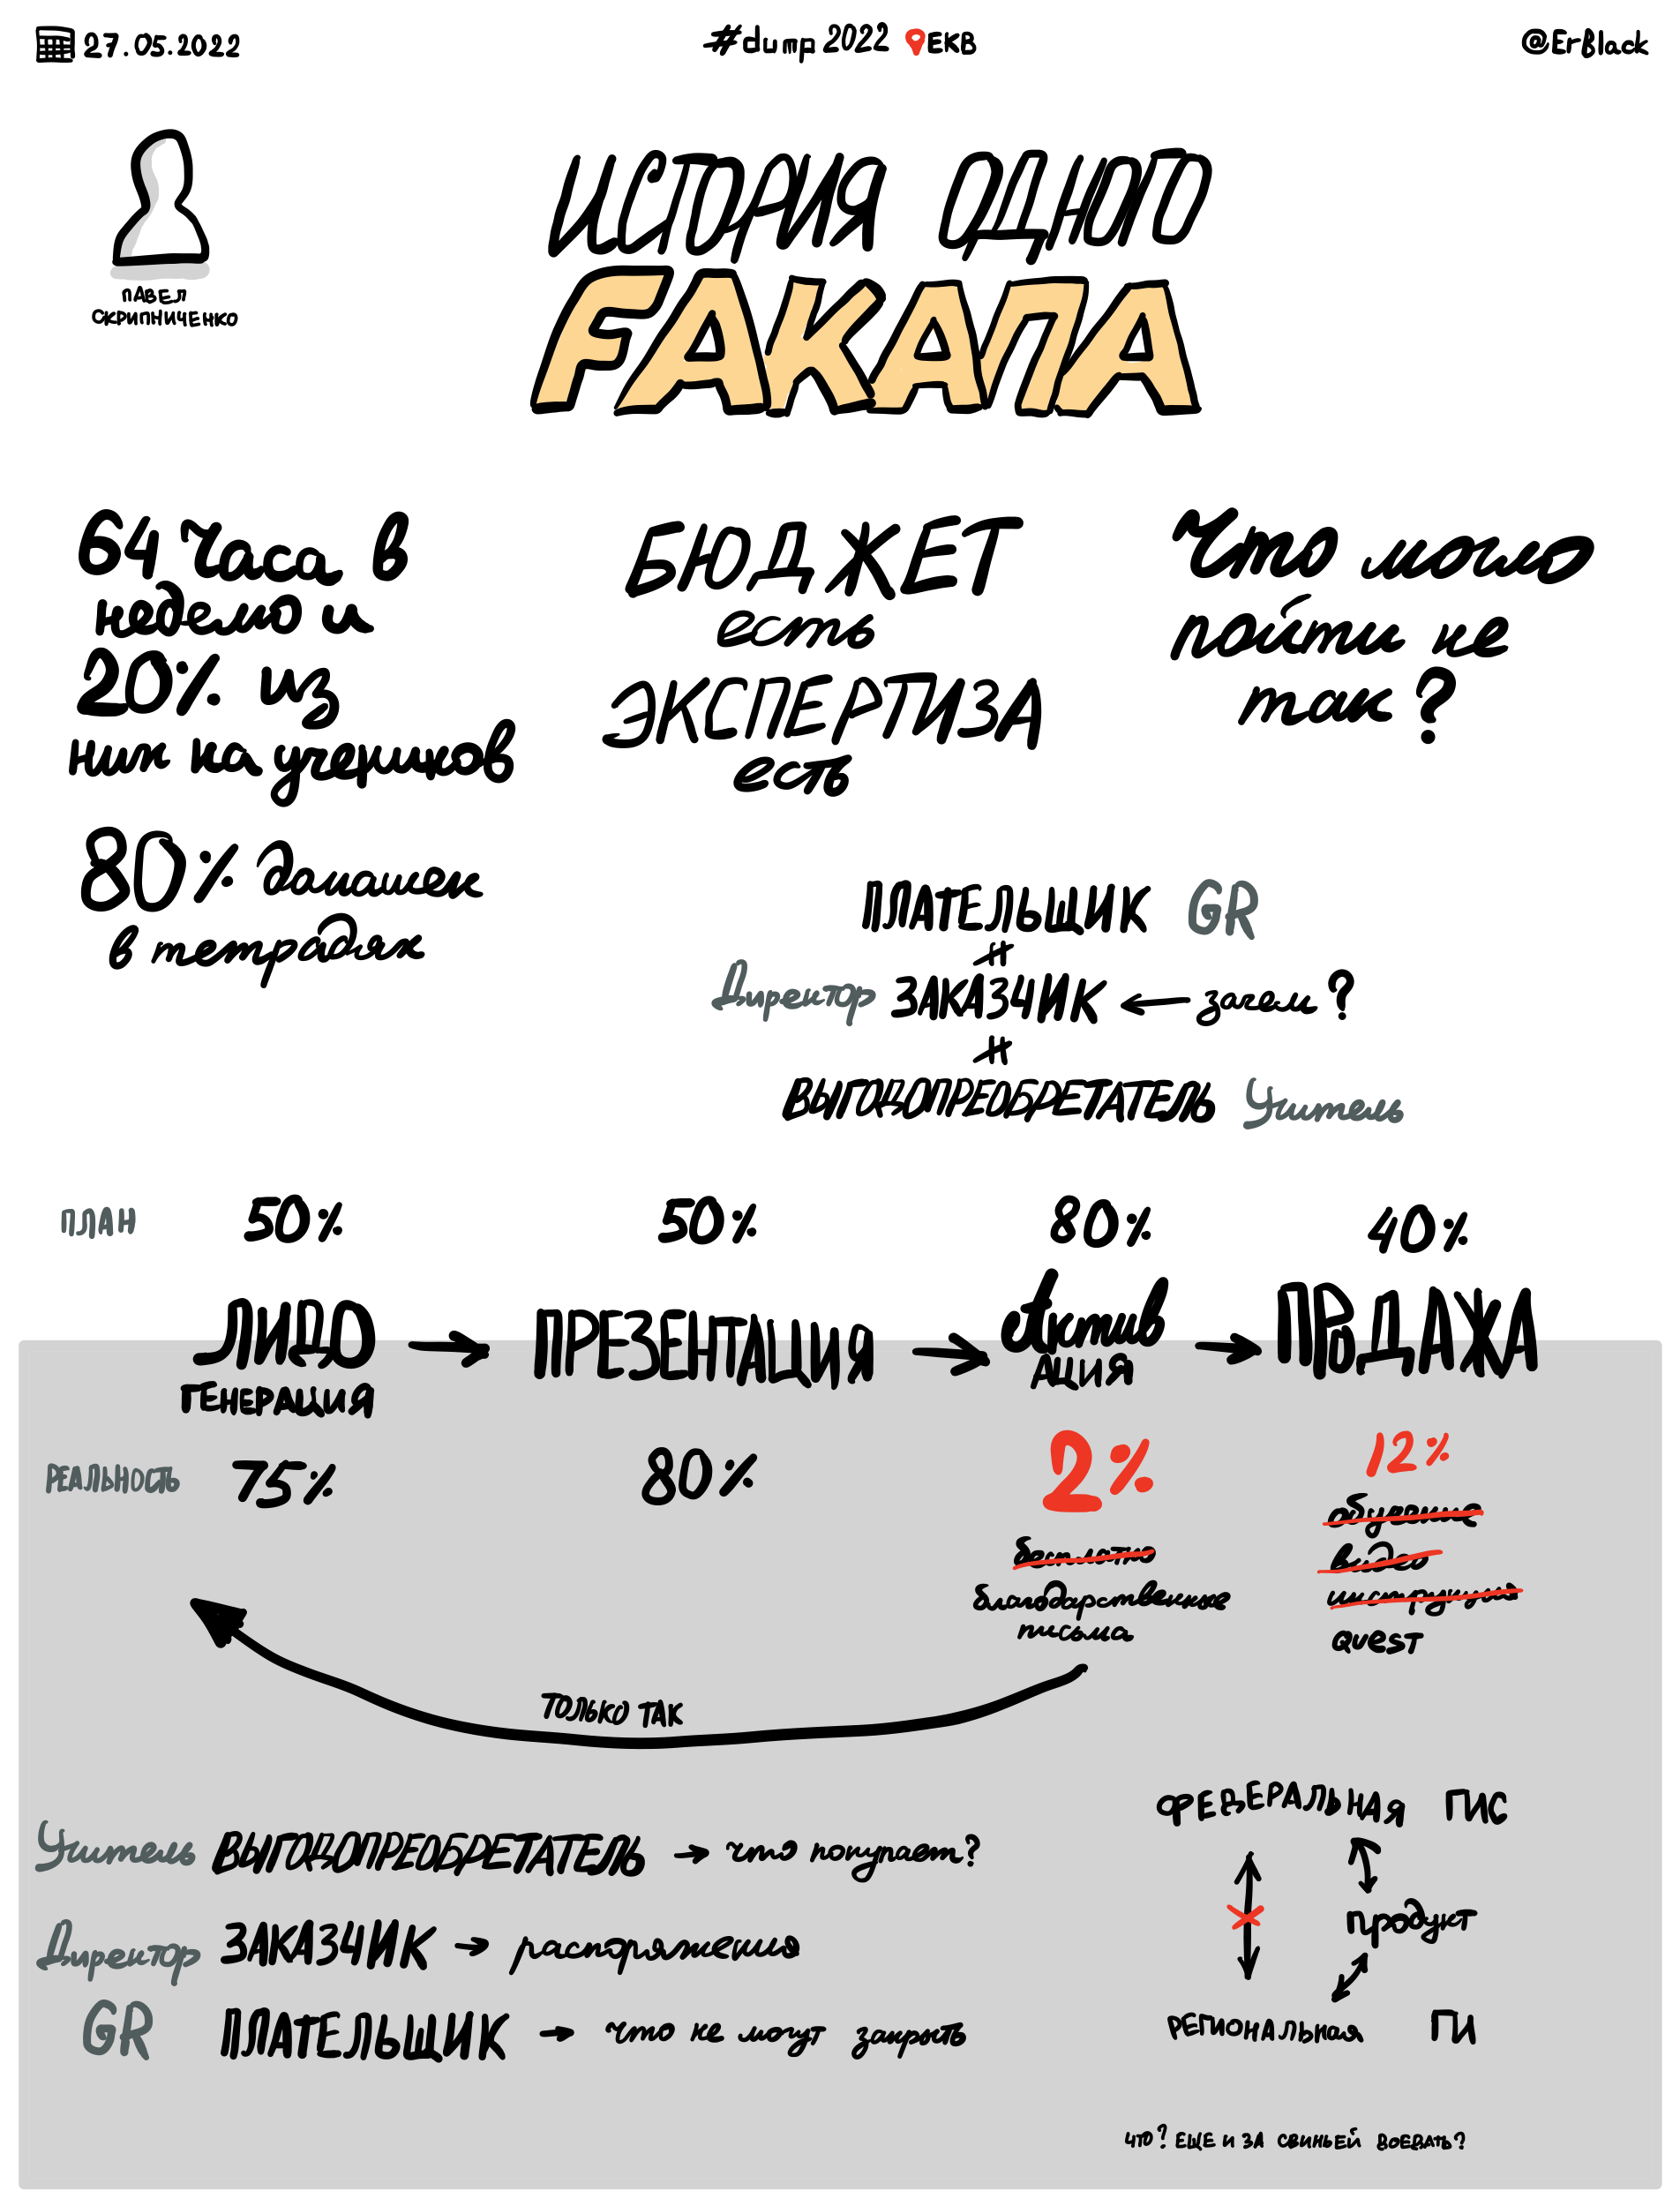 27.05.2022
#dump2022 ЕКВ
@ErBlack
ПАВЕЛ
СКРИПНИЧЕНКО
ИСТОРИЯ ОДНОГО
FАКАПА
64 часа в
неделю и
20% из
них на учеников
80% домашек
в тетрадях
БЮДЖЕТ
есть
ЭКСПЕРТИЗА
есть
Что могло
пойти не
так?
ПЛАТЕЛЬЩИК GR
≠
Директор ЗАКАЗЧИК ← зачем?
≠
ВЫГОДОПРЕОБРЕТАТЕЛЬ Учитель
ПЛАН 50% 50% 80% 40%
ЛИДО → ПРЕЗЕНТАЦИЯ → Актив → ПРОДАЖА
ГЕНЕРАЦИЯ
АЦИЯ
РЕАЛЬНОСТЬ 75% 80% 2% 12%
бесплатно
благодарственные
письма
обучение
видео
инструкция
QUEST
ТОЛЬКО ТАК
Учитель ВЫГОДОПРЕОБРЕТАТЕЛЬ → что покупает?
Директор ЗАКАЗЧИК → распоряжения
GR ПЛАТЕЛЬЩИК → что не могут закрыть
ФЕДЕРАЛЬНАЯ ГИС
продукт
РЕГИОНАЛЬНАЯ ГИ
ЧТО? ЕЩЕ И ЗА СВИНЬЕЙ ВОЕВАТЬ?